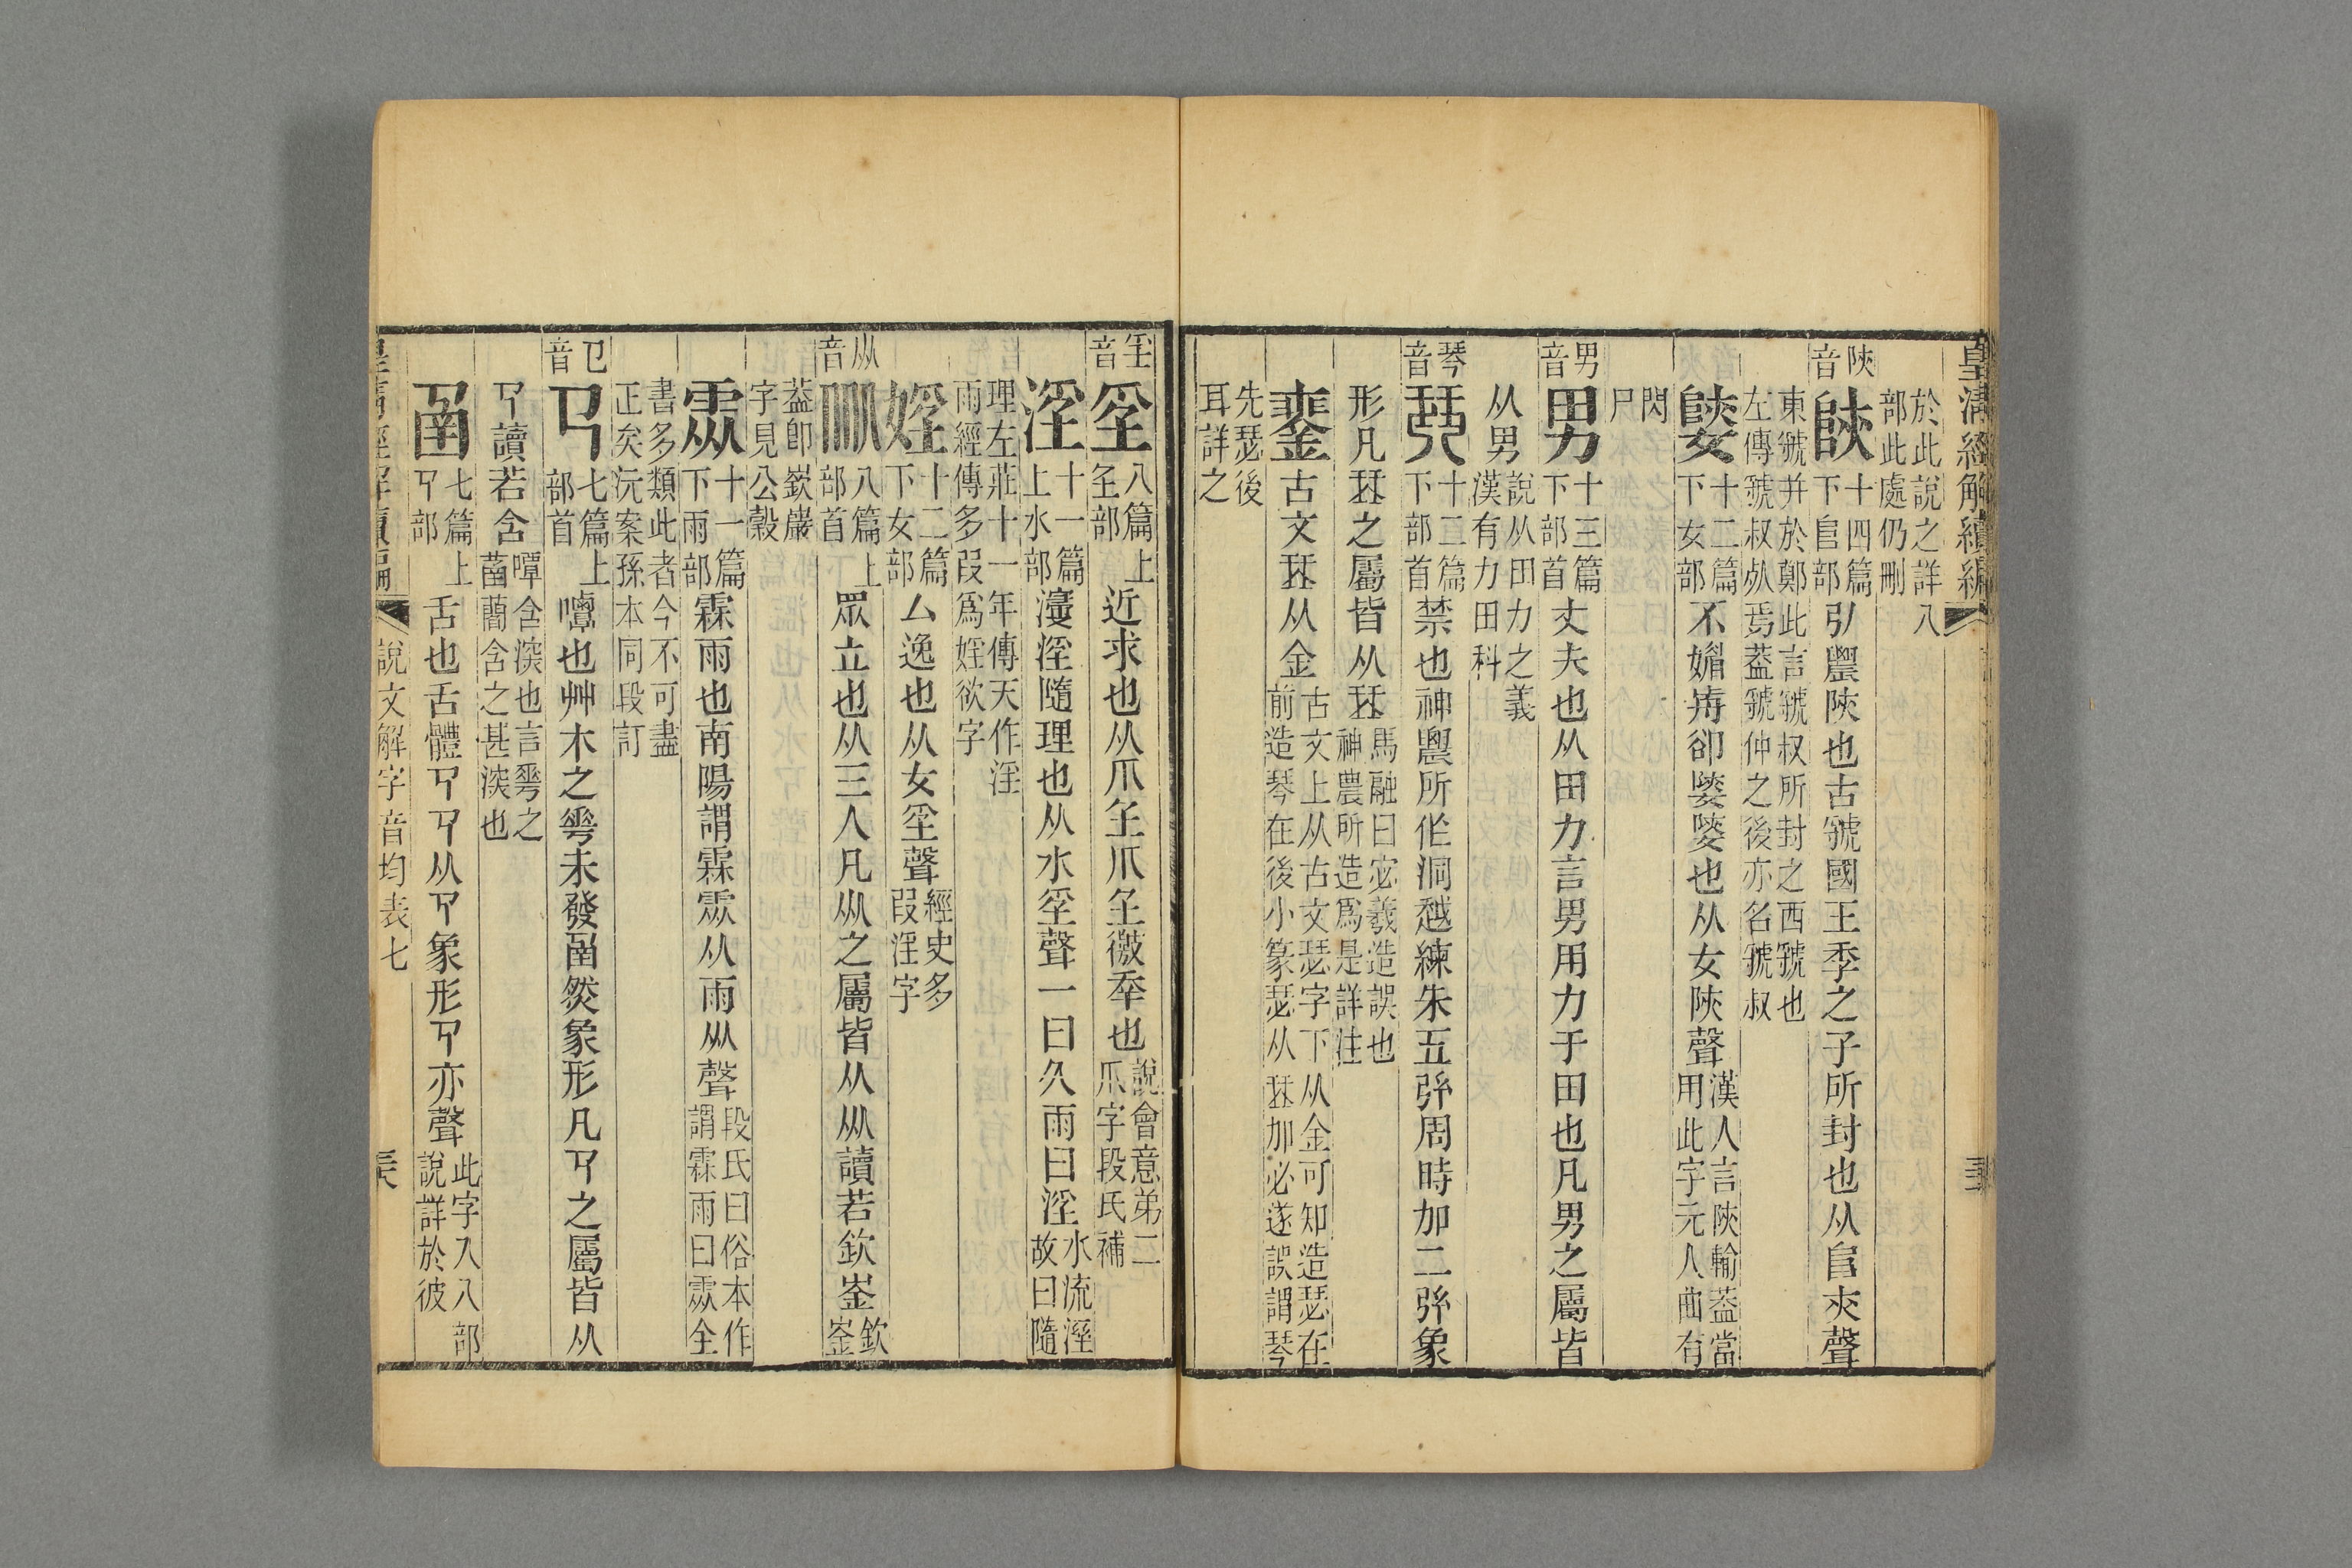 皇清經解續編
於此說之詳入
部此處仍刪
陝音
陝十四篇下𨸏部弘農陝也古虢國王季之子所封也从𨸏夾聲
東虢并於鄭此言虢叔所封之西虢也
左傳虢叔死焉葢虢仲之後亦名虢叔
十二篇下女部不媚歬卻也从女陝聲漢人言陝輸葢當用此字元人曲有
閃尸
男音
男十三篇下部首丈夫也从田力言男用力于田也凡男之屬皆
从男說从田力之義漢有力田科
琴音
琴十二篇下部首禁也神農所作洞越練朱五弦周時加二弦象
形凡珡之屬皆从珡馬融曰宓羲造誤也神農所造爲是詳注
古文珡从金古文上从古文瑟字下从金可知造瑟在前造琴在後小篆瑟从珡加必遂誤謂琴
先瑟後
耳詳之
𡈼音
㸒八篇上𡈼部近求也从爪𡈼爪𡈼徼幸也說會意弟二爪字段氏補
淫十一篇上水部𣹢淫隨理也从水㸒聲一曰久雨曰淫水流淫故曰隨
理左莊十一年傳天作淫
雨經傳多叚爲婬欲字
婬十二篇下女部厶逸也从女㸒聲經史多叚淫字
㐺音
㐺八篇上部首眾立也从三人凡㐺之屬皆从㐺讀若欽崟欽崟
葢卽嶔巖
字見公穀
霥十一篇下雨部霖雨也南陽謂霖霥从雨㐺聲段氏曰俗本作謂霖雨曰霥全
書多類此者今不可盡
正矣沅案孫本同段訂
㔾音
𢎘七篇上部首嘾也艸木之𠌶未發圅然象形凡𢎘之屬皆从
𢎘讀若含嘾含深也言𠌶之菡藺含之甚深也
圅七篇上𢎘部舌也舌體𢎘𢎘从𢎘象形𢎘亦聲此字入八部說詳於彼
說文解字音均表七